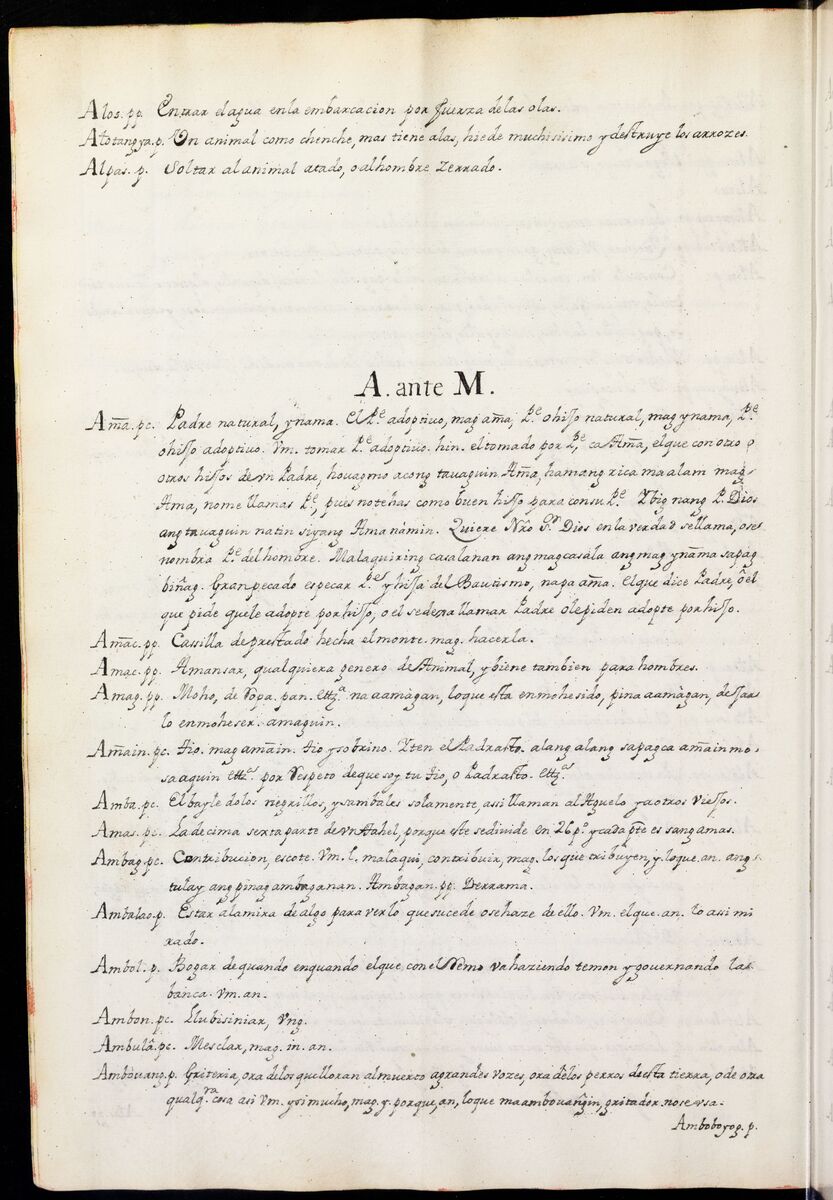 Alos. pp. Entrar el agua en la embarcacion por fuerza de las olas.
Atotangya. p. Un animal como chenche, mas tiene alas, hiede muchisisimo y destruye los arrozes.
Alpas. p. Soltar al animal atado, o al hombre zerrado.
A. ante M.
Am̃a. pc. Padre natural, ynama. El Pe. adoptivo, mag am̃a, Pe. o hisso natural, mag ynama, Pe.
o hisso adoptivo. Vm. tomar Pe. adoptivo. hin. el tomado por Pe, ca Am̃a, el que con otro o
otros hissos de vn Padre, houagmo acong tauaguin Am̃a, hamang rica maalam mag
Ama, no me llamas Pe, pues no te has como buen hisso para con su Pe. Ybig nang P. Dios
ang tauaguin natin siyang Ama námin. Quiere Nr̃o Sr. Dios en la verdad se llama, o se
nombra Pe. del hombre. Malaquiring casalanan ang magcasála ang mag ynãma sa pag
biñag. Gran pecado es pecar Pe. y hissa del Bautismo, napa am̃a. El que dice Padre, o el
que pide que le adopte por hisso, o el se dexa llamar Padre o le piden adopte por hisso.
Am̃ac. pp. Cassilla de prestado hecha el monte. mag. hacerla.
Amac. pp. Amansar, qualquiera genero de Animal, y biene tambien para hombres.
Amag. pp. Moho, de ropa. pan. ettz.a na aamàgan, lo que esta enmohesido, pina aamàgan, dessar
lo enmoheser. amaguin.
Am̃ain. pc. tio. mag am̃ain. tio y sobrino. Yten el Padrasto. alang alang sa pagca am̃ain mo
sa aquin ettz.a por respeto de que soy tu tio, o Padrasto. ettz.a
Amba. pc. El bayle de los negrillos, y sambales solamente, assi llaman al Aguelo y a otros viessos.
Amas. pc. La decima sexta parte de vn tahel, porque este se divide en 26 ps. y cada pte es sang amas.
Ambag. pc. Contribucion, escote. Vm. l. malaqui, contribuir, mag. los que tribuyen, y lo que. an. ang
tulay ang pinag ambaganan. Ambagan. pp. Derrama.
Ambalao. p. Estar a la mira de algo para ver lo que sucede o se haze de ello. Vm. el que. an. lo asi mi
rado.
Ambol. p. Bogar de quando en quando el que con el Remo va haziendo temon y governando la
banca. vm. an.
Ambon. pc. Llubisiniar, vng.
Ambulà. pc. Mesclar, mag. in. an.
Ambòuang. p. Griteria, ora de los que lloran al muerto a grandes vozes, ora de los perros de esta tierra, o de otra
qualq.ra cosa asi Vm. y si mucho, mag. y. porque, an, lo que ma ambouan̂gin, gritador. no se vsa.
Amboboyog. p.